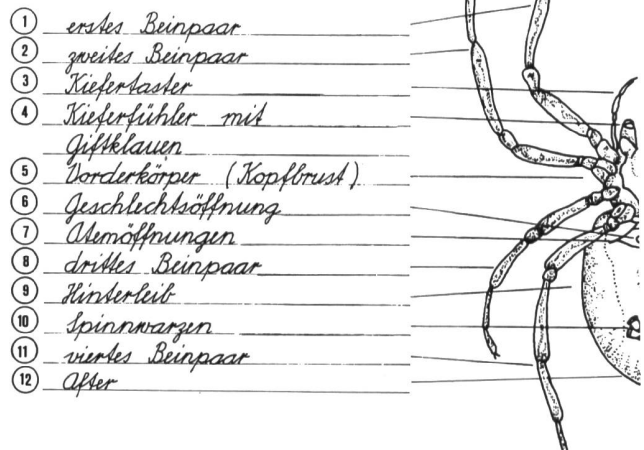 1 erstes Beinpaar
2 zweites Beinpaar
3 Kiefertaster
4 Kieferfühler mit
Giftklauen
5 Vorderkörper (Kopfbrust)
6 Geschlechtsöffnung
7 Atemöffnungen
8 drittes Beinpaar
9 Hinterleib
10 Spinnwarzen
11 viertes Beinpaar
12 After